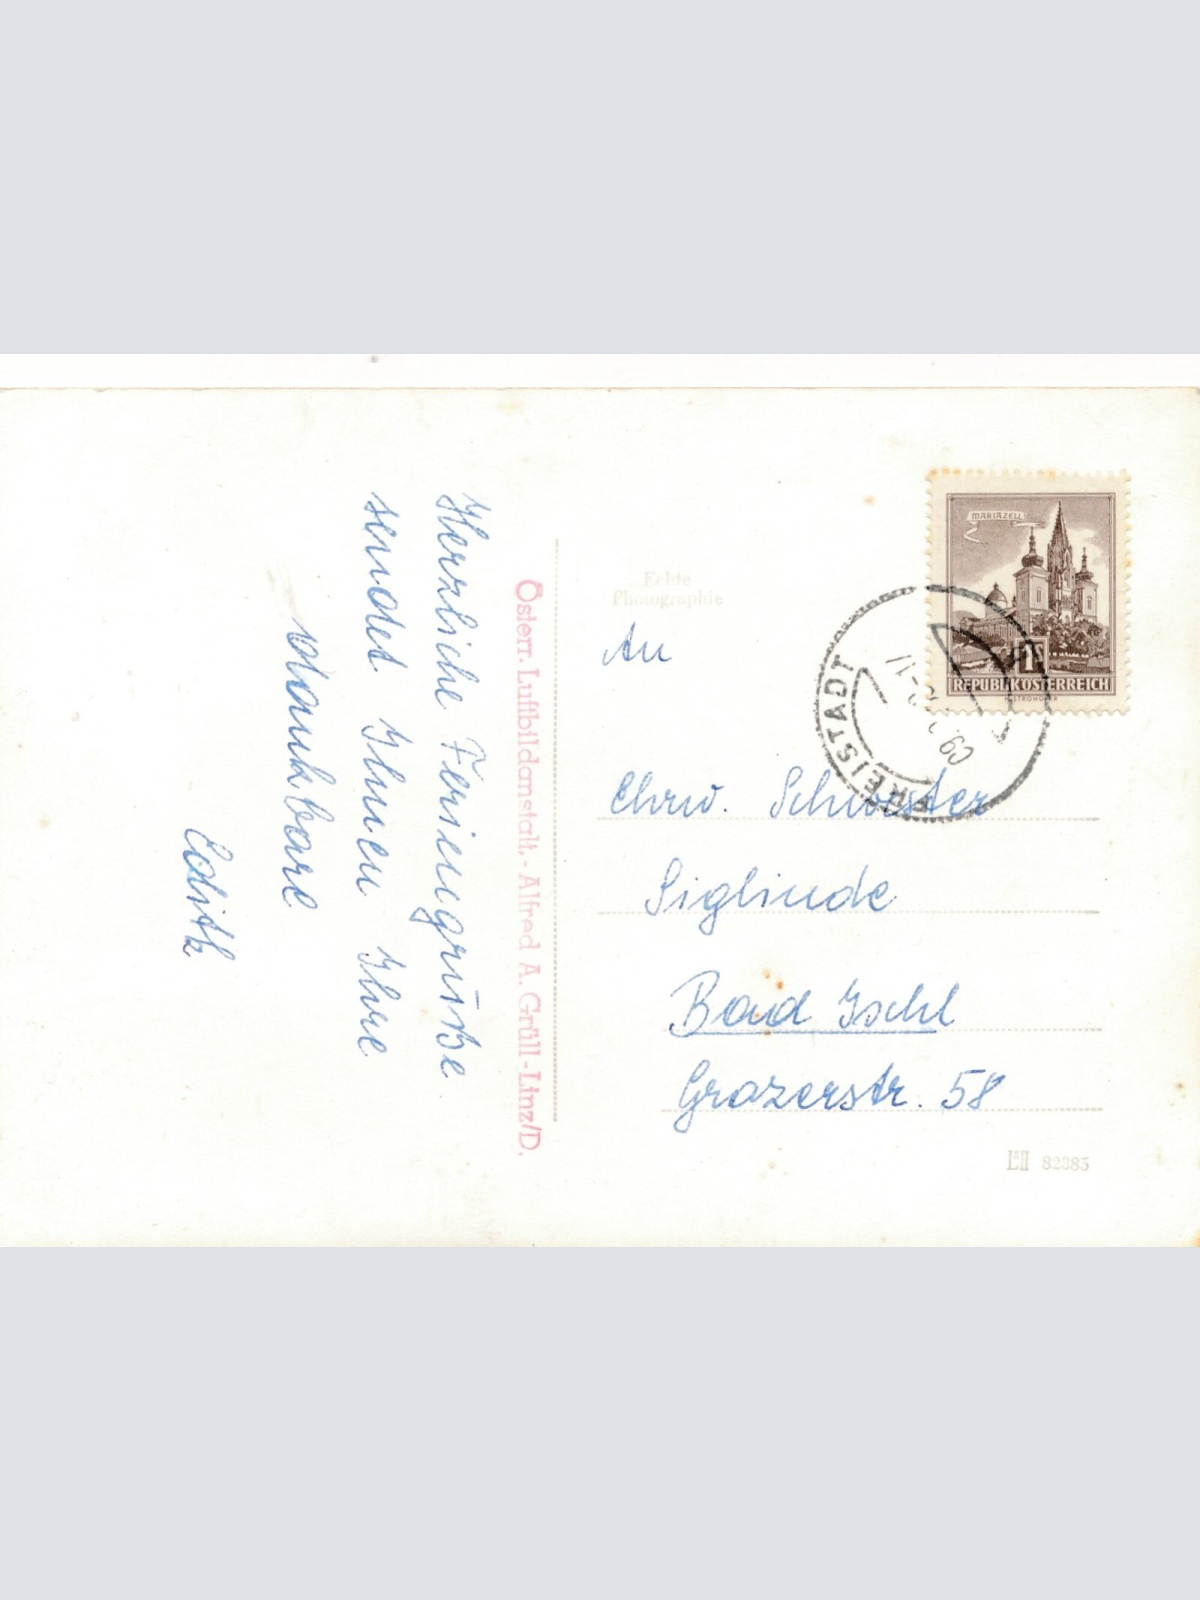 Herzliche Feriengrüße
sendet Ihnen Ihre
dankbare
Edith
Österr. Luftbildanstalt, - Alfred A. Gräll - Linz/D.
Echte
Photographie
MARIAZELL
1 S
REPUBLIK ÖSTERREICH
FREISTADT
An
Ehrw. Schwester
Siglinde
Bad Ischl
Grazerstr. 58
82385